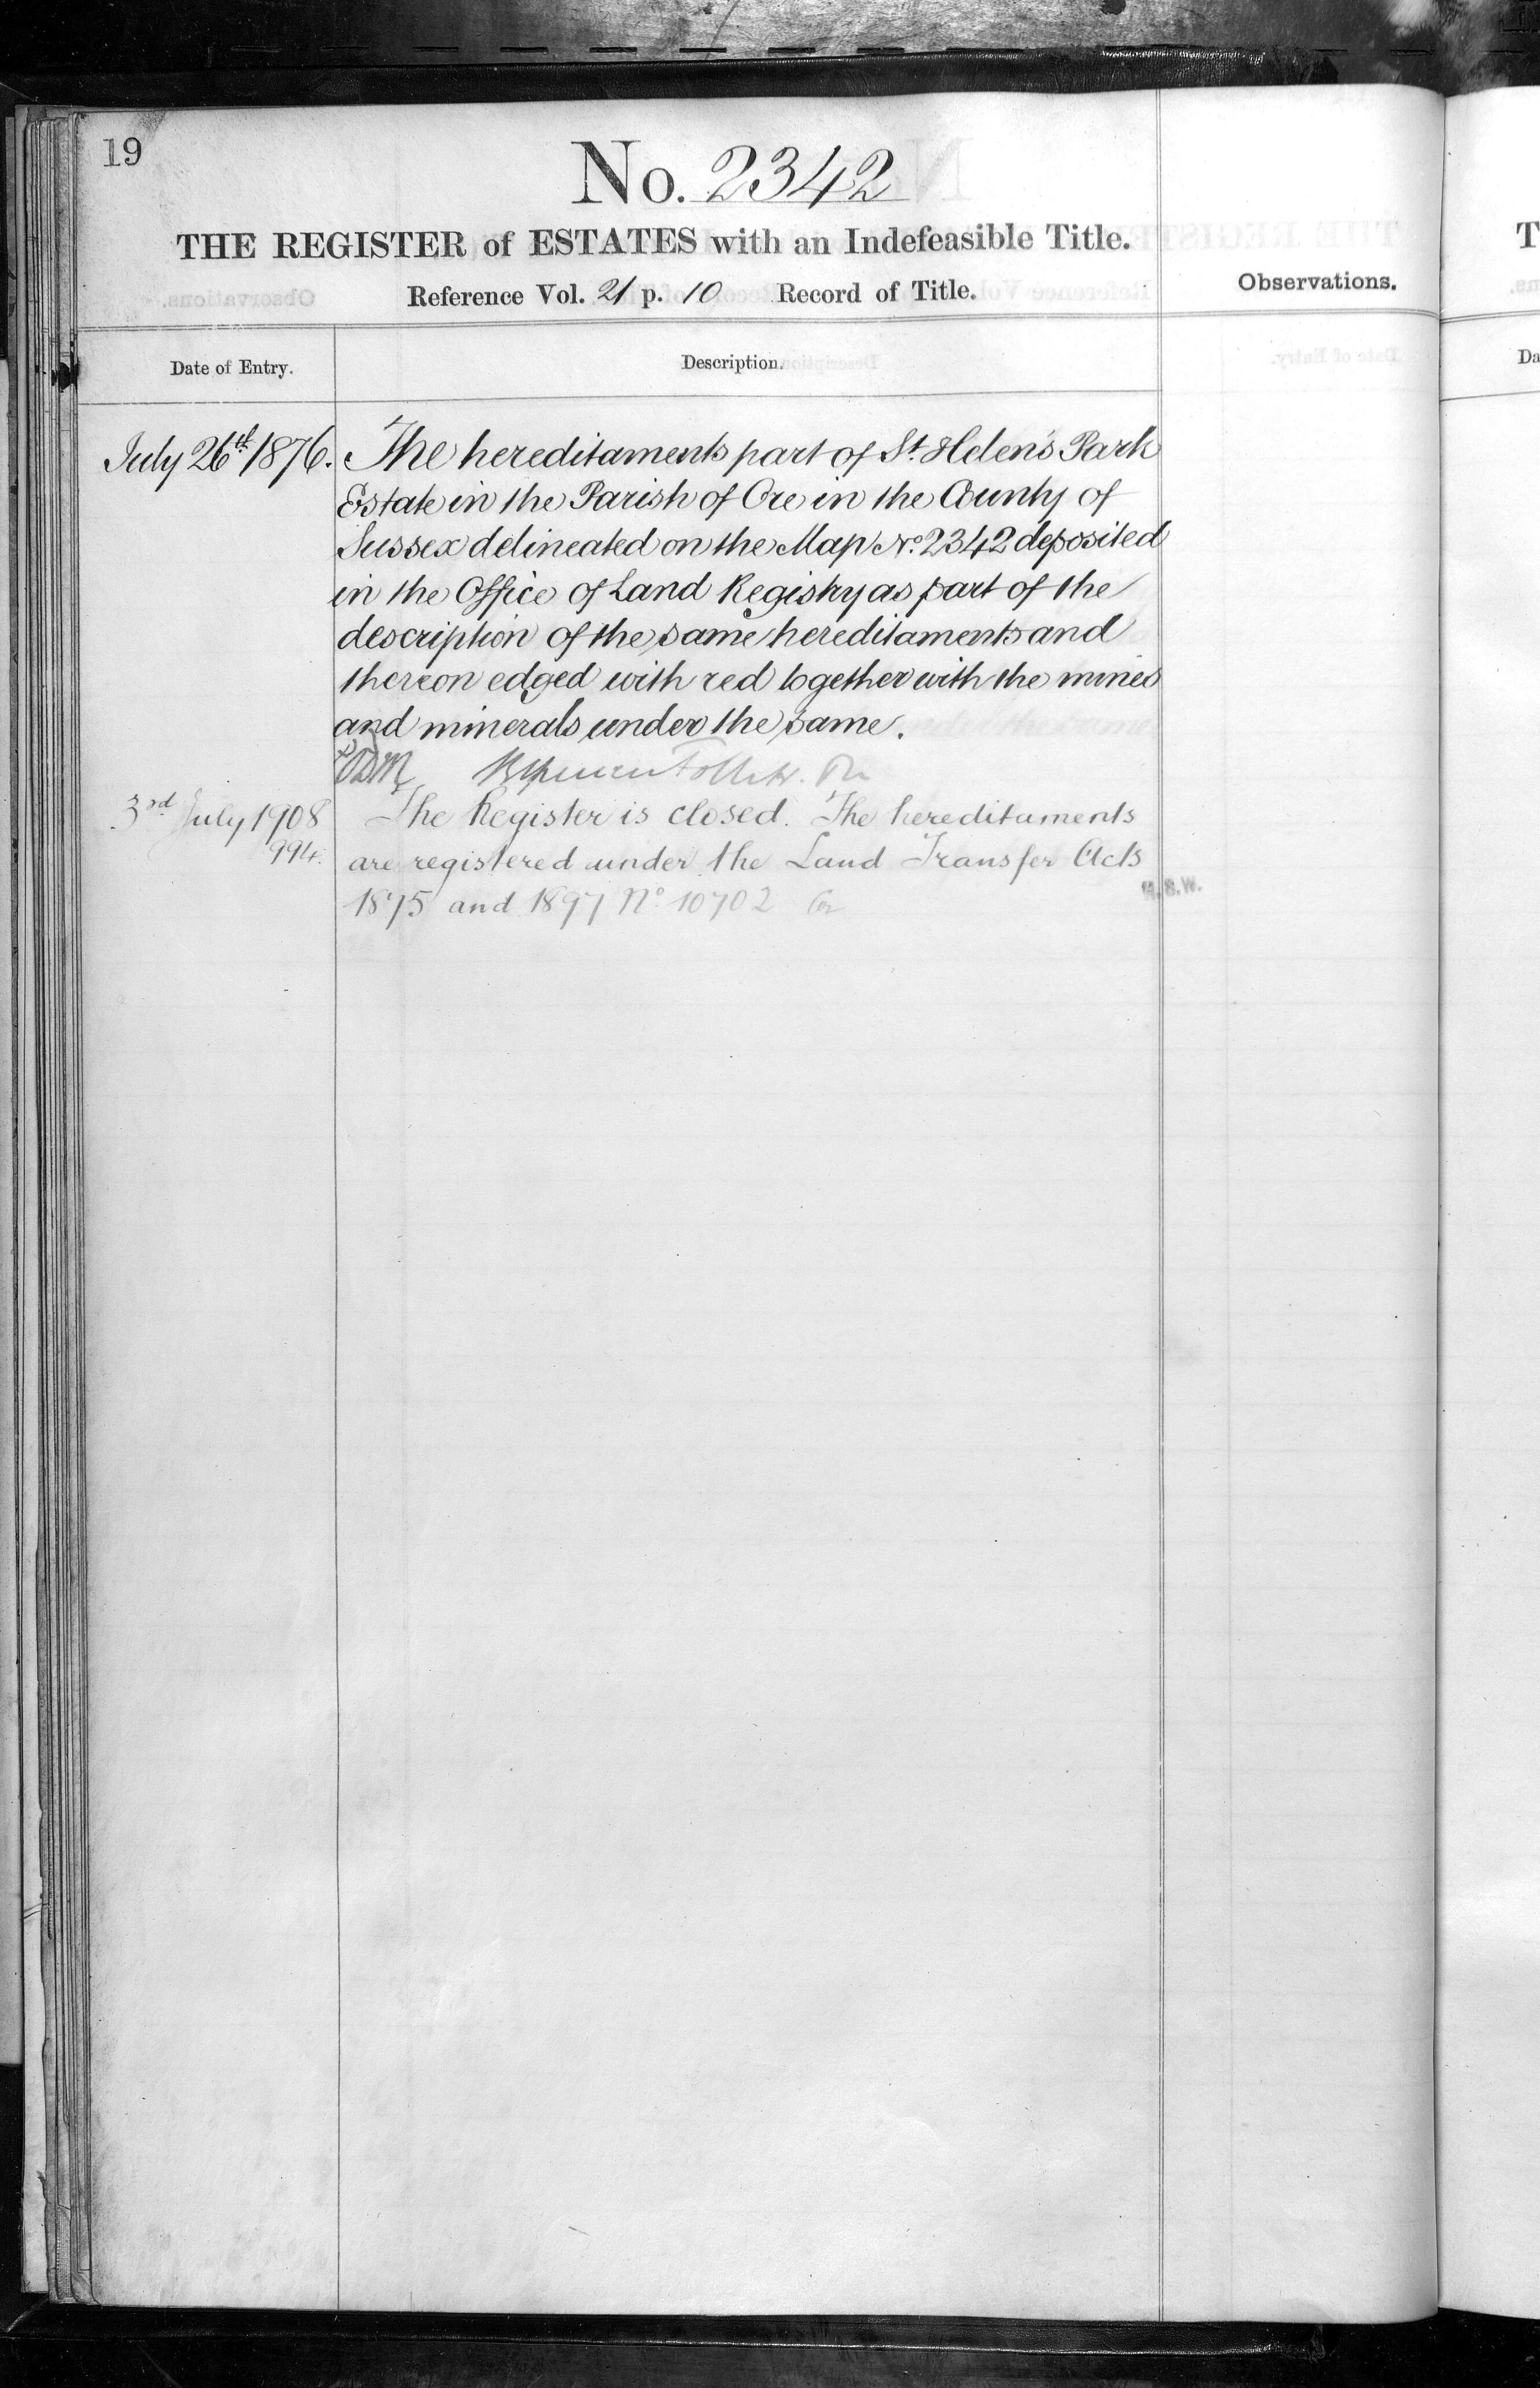 19
No. 2342
THE REGISTER of ESTATES with an Indefeasible Title.
Reference Vol. 21 p. 10 Record of Title.
Observations.
Date of Entry.
Description.
July 26th 1876.
The hereditaments part of St. Helen's Park
Estate in the Parish of Ore in the County of
Sussex delineated on the Map No. 2342 deposited
in the Office of Land Registry as part of the
description of the same hereditaments and
thereon edged with red together with the mines
and minerals under the same.
3rd July 1908
994.
The Register is closed. The hereditaments
are registered under the Land Transfer Acts
1875 and 1897 No 10702
T
Da